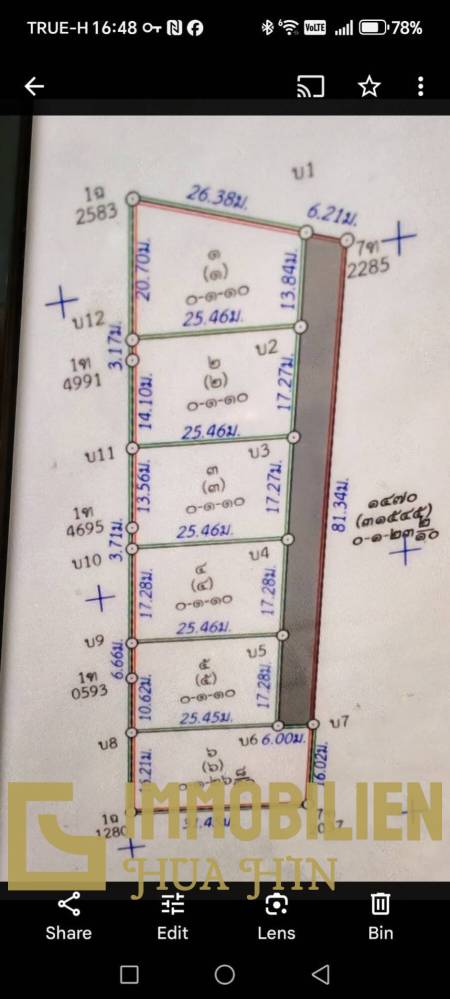 TRUE-H 16:48
VoLTE
78%
บ1
1ฉ
2583
26.38ม.
6.21ม.
7ฑ
2285
20.70ม.
๑
(๑)
๐-๑-๑๐
13.84ม.
25.46ม.
บ12
3.17ม.
บ2
1ฑ
4991
๒
(๒)
๐-๑-๑๐
14.10ม.
17.27ม.
25.46ม.
บ11
บ3
13.56ม.
๓
(๓)
๐-๑-๑๐
17.27ม.
81.34ม.
๑๔๗๐
1ฑ
4695
3.71ม.
25.46ม.
บ10
บ4
17.28ม.
๔
(๔)
๐-๑-๑๐
17.28ม.
25.46ม.
บ9
บ5
6.66ม.
1ฑ
0593
10.62ม.
๕
(๕)
๐-๑-๑๐
17.28ม.
25.45ม.
บ8
บ6
6.00ม.
บ7
๖
(๖)
6.02ม.
1ฉ
1280
IMMOBILIEN
HUA HIN
Share
Edit
Lens
Bin